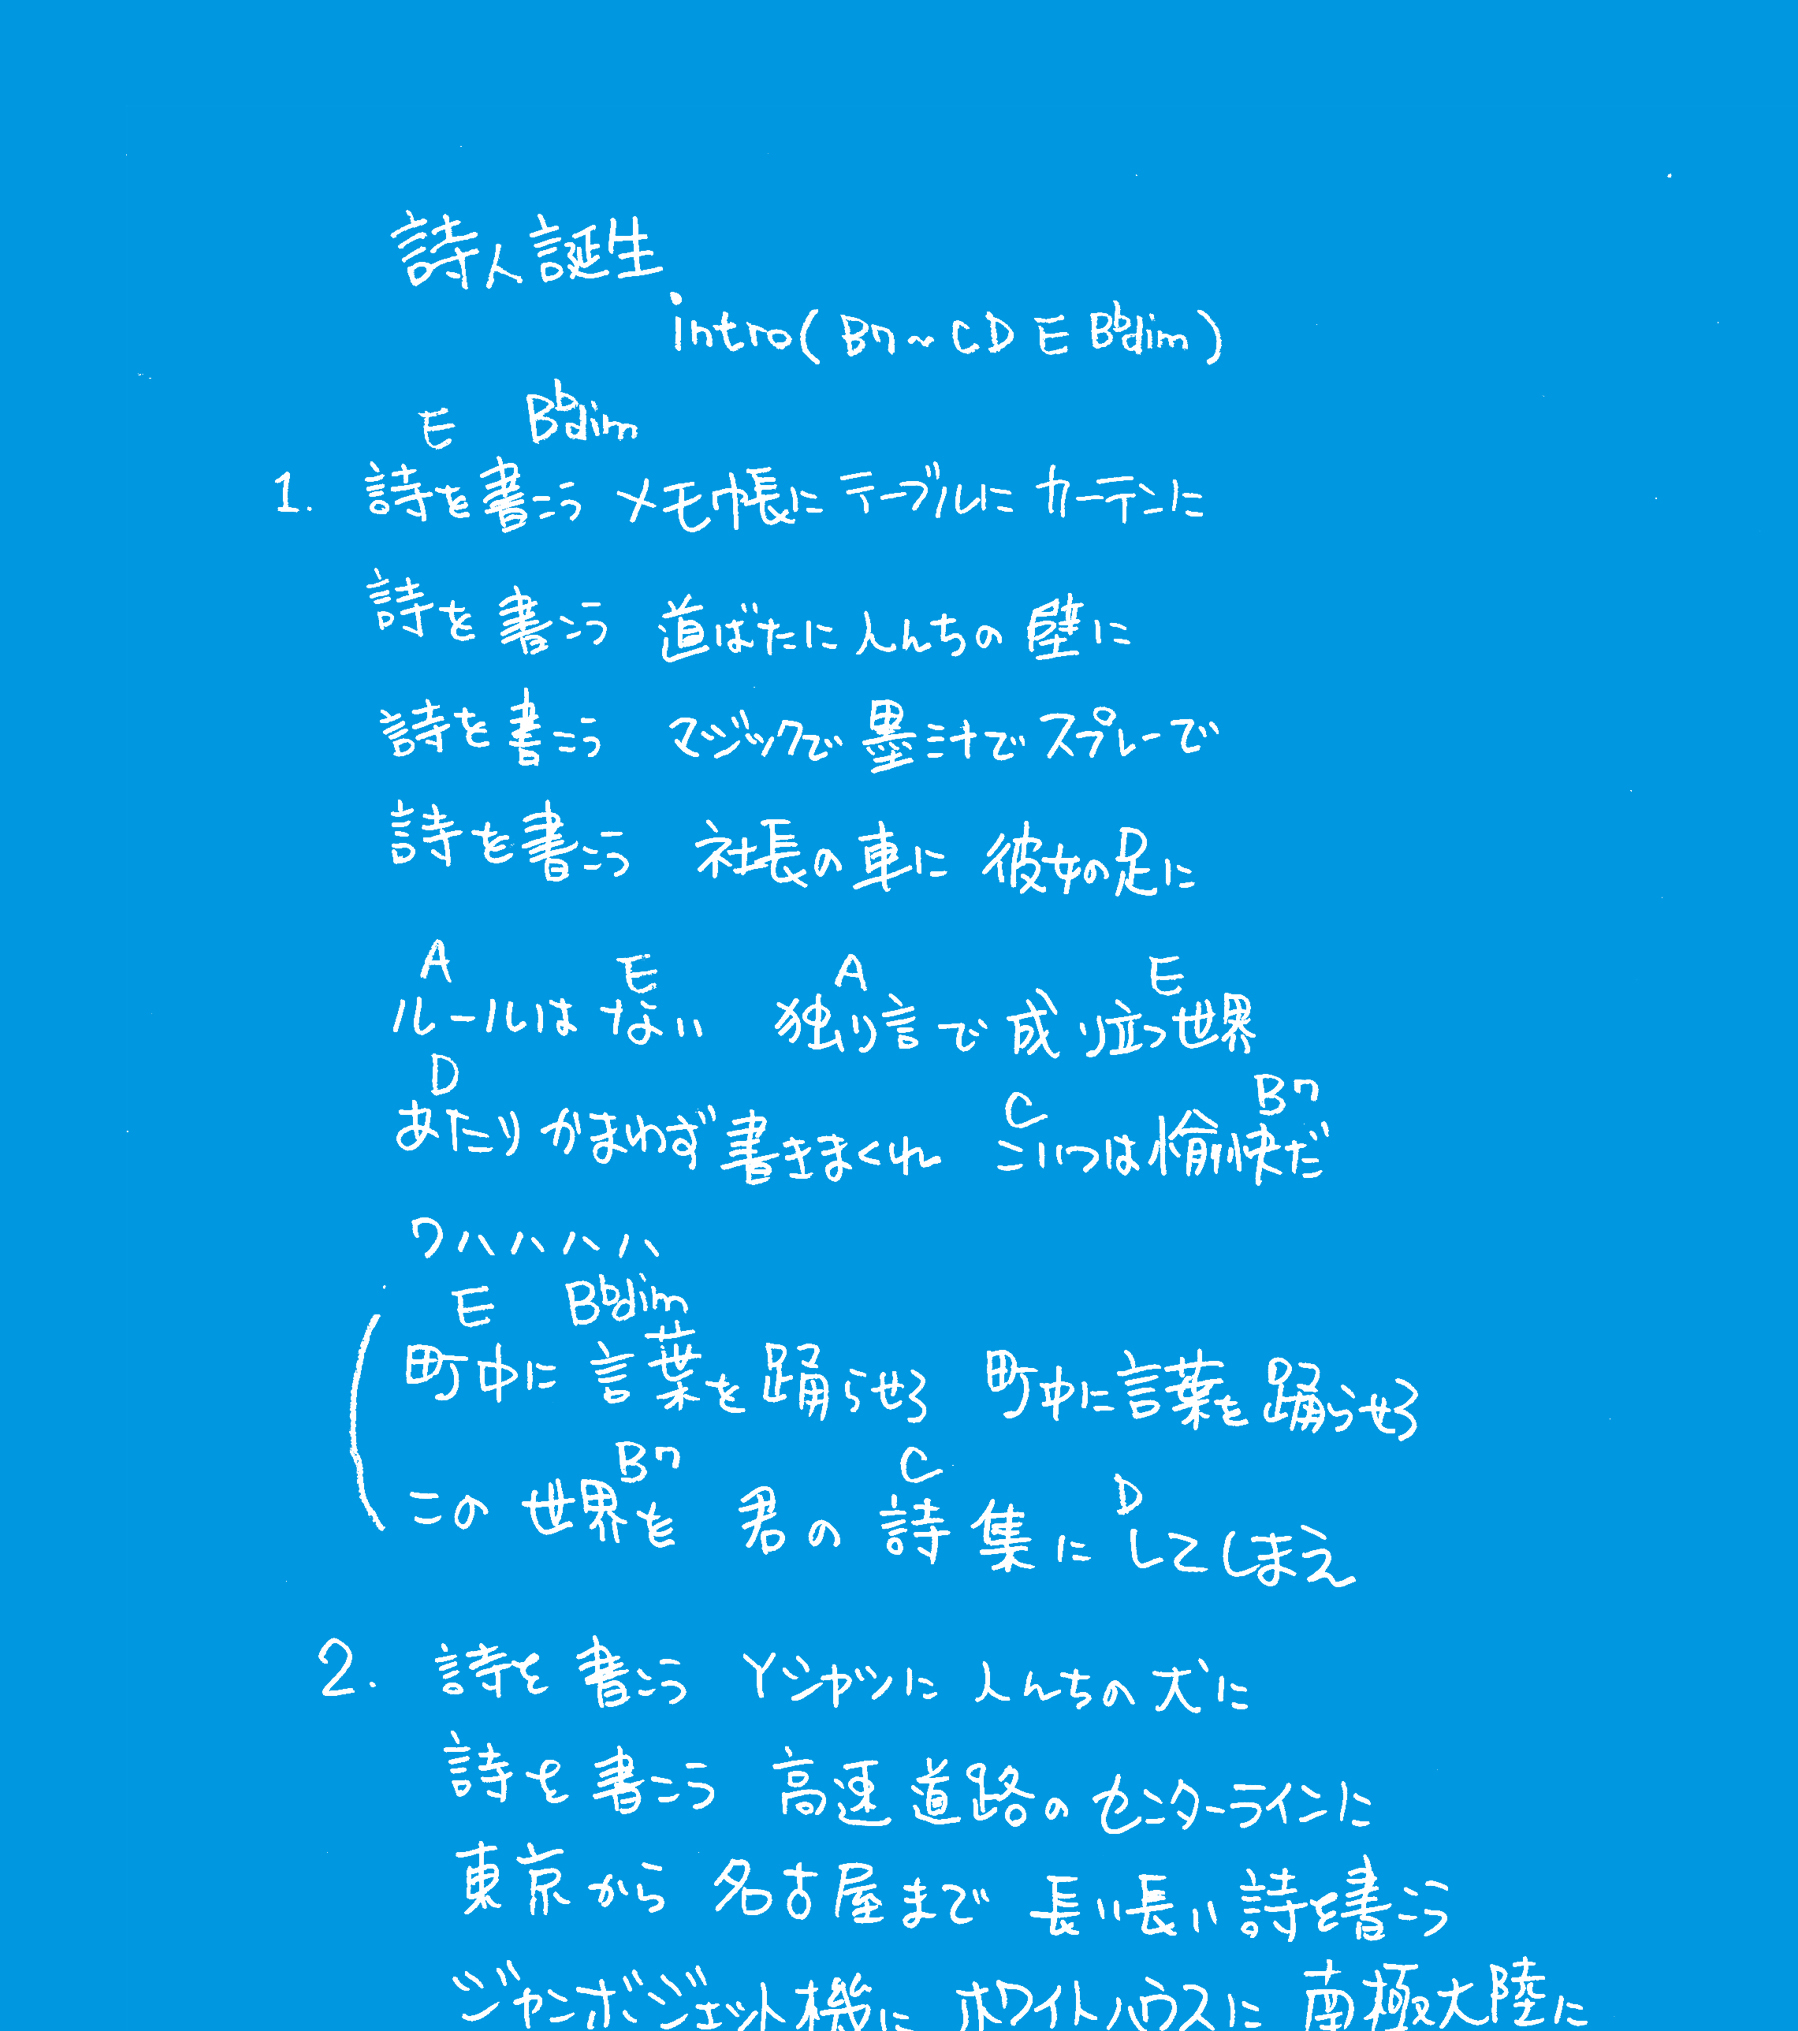 詩人誕生
intro(B7~CD E B♭dim)
E B♭dim
1. 詩を書こう メモ帳に テーブルに カーテンに
詩を書こう 道ばたに 人んちの壁に
詩を書こう マジックで 墨汁で スプレーで
詩を書こう 社長の車に 彼女の足に
A E A E
ルールはない 独り言で成り立つ世界
D C B7
あたりかまわず書きまくれ こいつは愉快だ
ワハハハハ
E B♭dim
町中に言葉を踊らせろ 町中に言葉を踊らせろ
B7 C D
この世界を 君の詩集にしてしまえ
2. 詩を書こう Yシャツに 人んちの犬に
詩を書こう 高速道路のセンターラインに
東京から名古屋まで 長い長い詩を書こう
ジャンボジェット機に ホワイトハウスに 南極大陸に